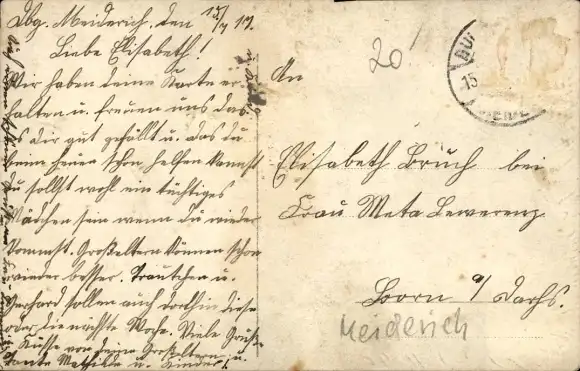 Dbg. Meiderich, den 15/7 19.
Liebe Elisabeth!
Wir haben deine Karte er-
halten u. freuen uns das
es dir gut gefällt u. das du
beim heuen schon helfen kannst
du sollst wohl ein tüchtiges
Mädchen sein wenn du wieder
kommst. Großeltern können schon
wieder besser. Trautchen u.
Gerhard sollen auch dorthin diese
oder die nächste Woche. Viele Grüße
u. Küsse von deine Großeltern, u.
Tante Mathilde u. Kinder!
20!
15
An
Elisabeth Bruch bei
Frau Meta Lewerenz
Born a/ Darhs.
Meiderich